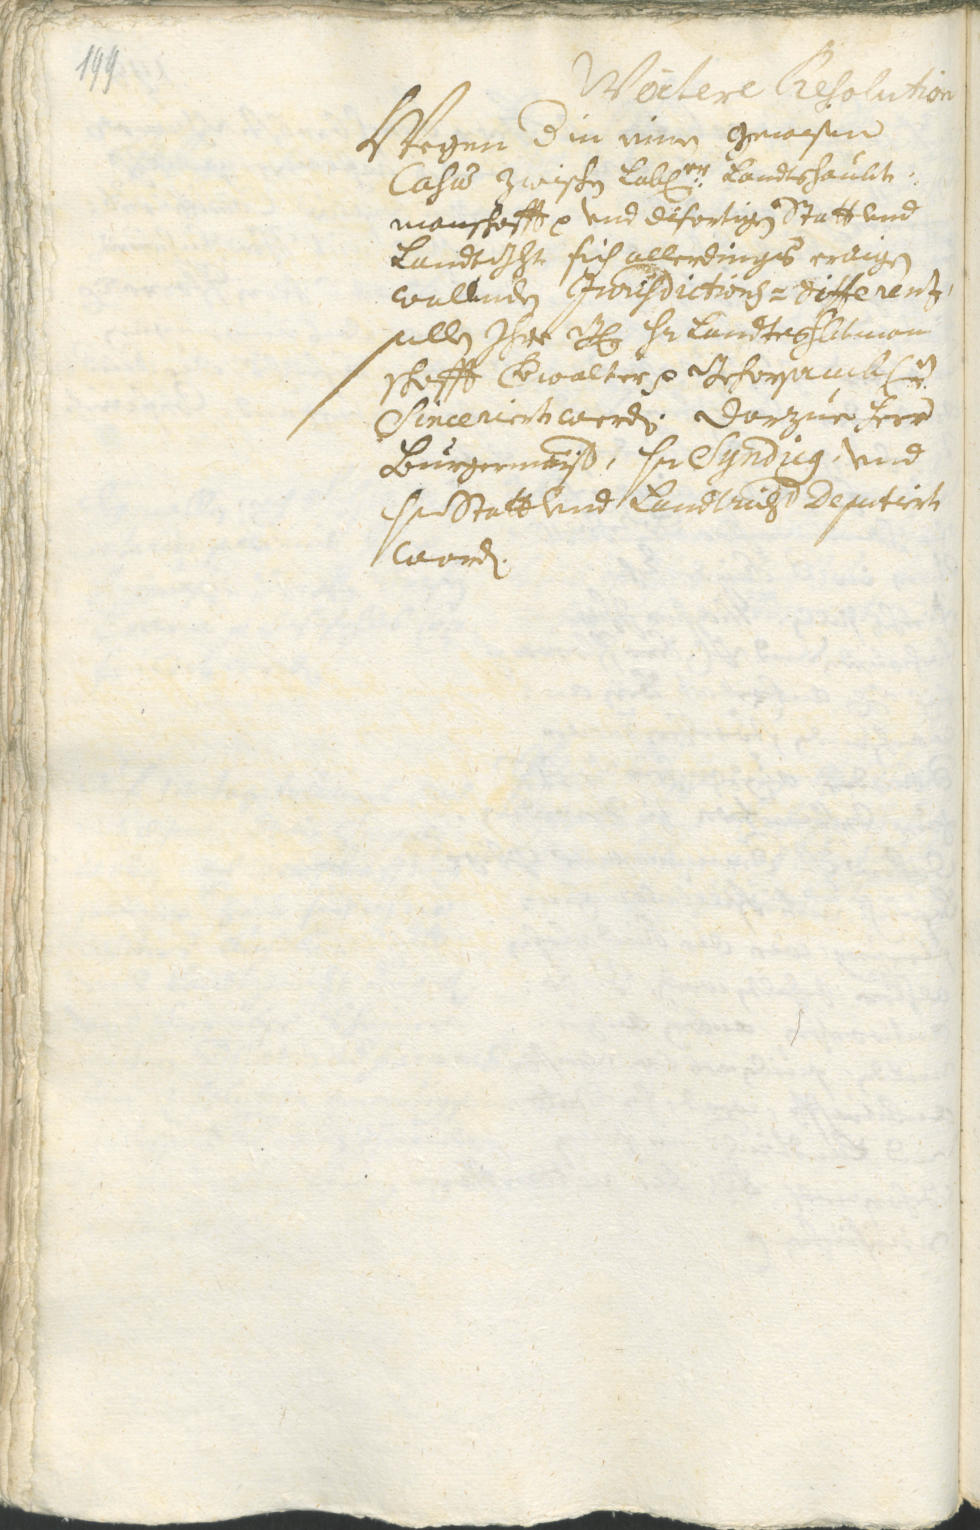 199
Weitere Resolution
Wegen d in einem gewisen
Cahsu zwischen Löbl: Landtshaubt-
manschafft vnd diSortigen Statt vnd
Landtgcht sich allerdings eraigen
wallenden Jurisdictions=differenz,
sollen Ihre Hr Landtshbtman
schafft Verwalter gehorsambl:
Sinceriert werden. Darzue Herr
Burgermaister, Hr Syndicus, vnd
Hr Statt vnd Landtrichter Deputiert
worden.